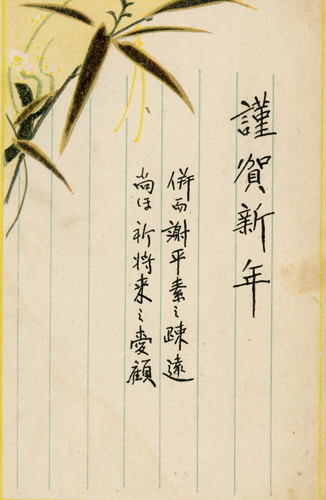 謹賀新年
併而謝平素之疎遠
尚ほ祈将来之愛顧